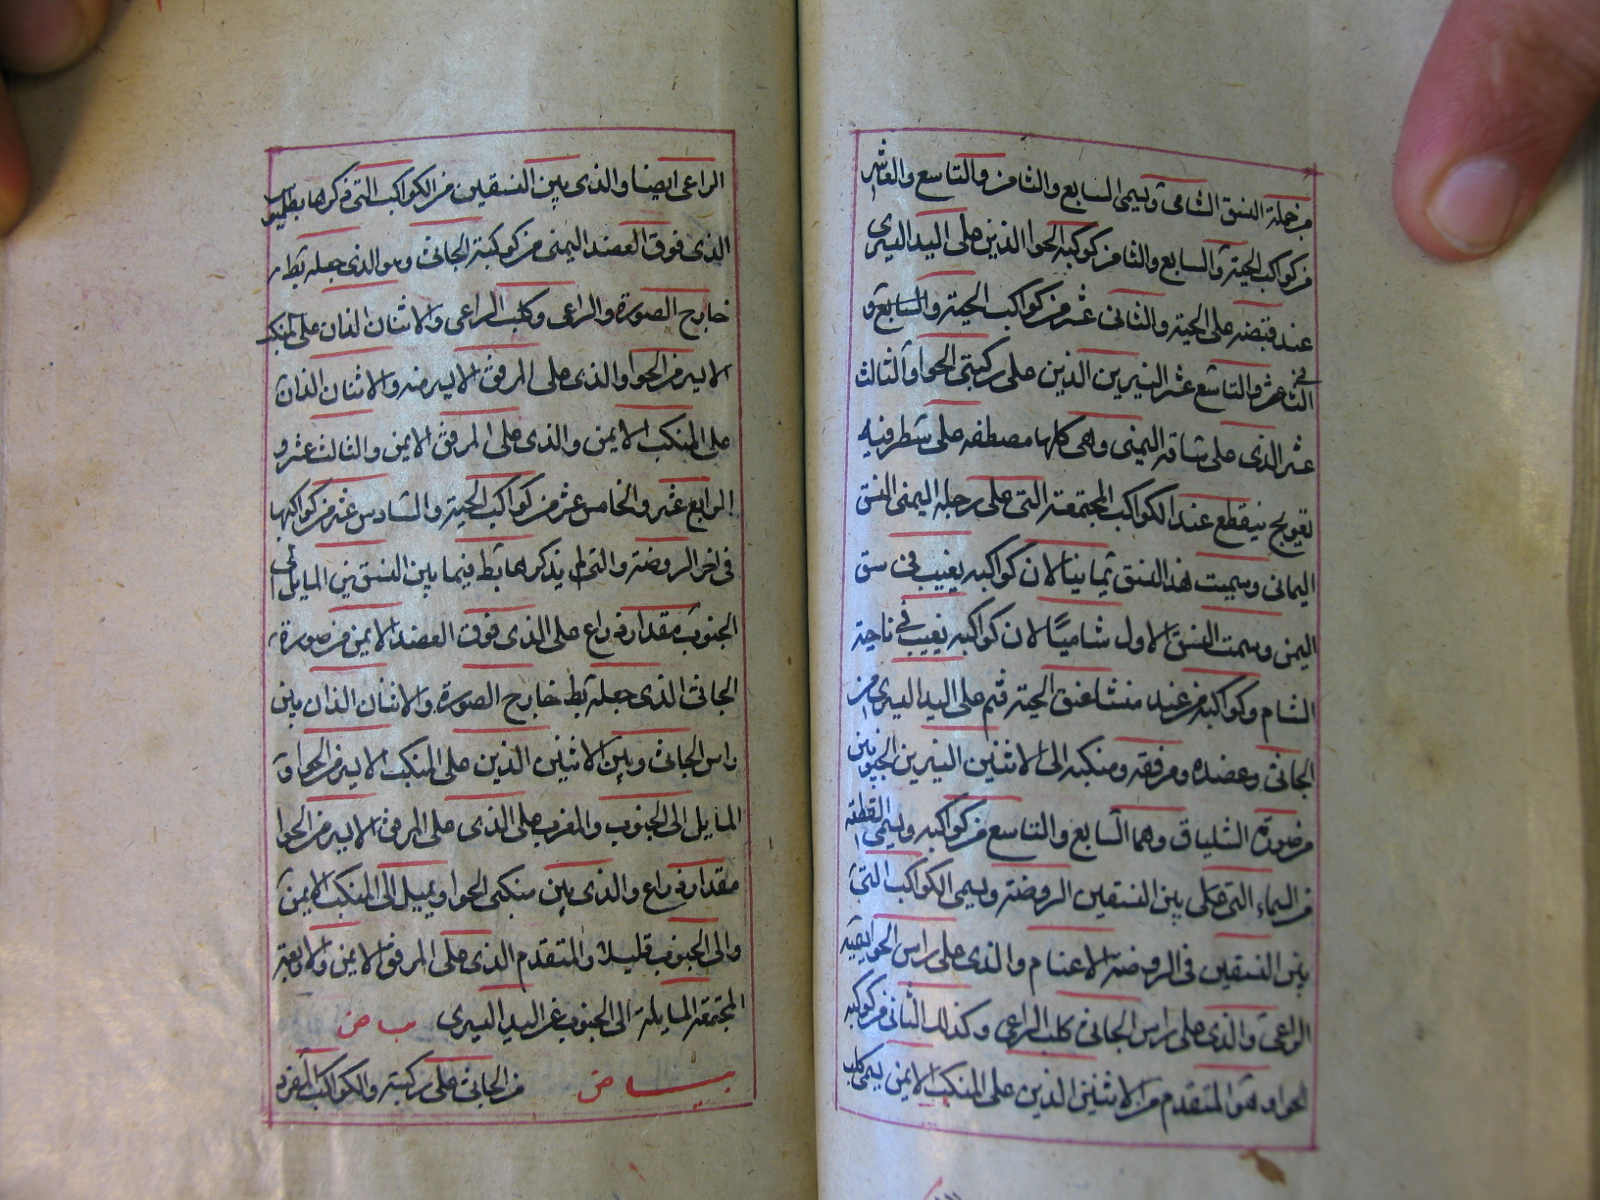 من جملة النسق الشامى ويسمى السابع والثامن والتاسع والعاشر
من كواكب الحية والسابع والثامن من كوكبه الحوا الذين على اليد اليسرى
عند قبضه على الحية والثانى عشر من كواكب الحية والسابع و
الثامن عشر والتاسع عشر النيرين الذين على ركبتى الحوا والثالث
عشر الذى على ساقه اليمنى وهى كلها مصطفه على سطر فيه
تعويج ينقطع عند الكواكب المجتمعة التى على رجله اليمنى النسق
اليمانى وسميت هذا النسق يمانيا لان كواكبه يغيب فى شق
اليمن وسمت النسق الاول شاميًا لان كواكبه يغيب فى ناحية
الشام وكواكبه من عند منشا عنق الحية ثم على اليد اليسرى من
الجاثى وعضده ومرفقه ومنكبه الى الاثنين النيرين الجنوبيين
من صورة الشلياق وهما السابع والتاسع من كواكبه ويسمى القطعة
من السماء التى هى بين النسقين الروضة ويسمى الكواكب التى
بين النسقين فى الروضة الاغنام والذى على راس الحوا يسميه
الراعى والذى على راس الجاثى كلب الراعى وكذلك الثانى من كوكبه
الحوا وهو المتقدم من الاثنين الذين على المنكب الايمن يسمى كلب
الراعى ايضا والذى بين النسقين من الكواكب التى ذكرها بطلميوس
الذى فوق العضد اليمنى من كوكبة الجاثى وهو الذى جعله بط
خارج الصورة والراعى وكلب الراعى والاثنان اللذان على المنكب
الايسر من الحوا والذى على المرفق الايسر منه والاثنان الذان
على المنكب الايمن والذى على المرفق الايمن والثالث عشر و
الرابع عشر والخامس عشر من كواكب الحية والسادس عشر من كواكبها
فى اخر الروضة والتى لم يذكرها بط فيما بين النسقين المايل الى
الجنوب مقدار ذراع على الذى فوق العضد الايمن من صورة
الجاثى الذى جعله بط خارج الصورة والاثنان الذان بين
راس الجاثى وبين الاثنين الذين على المنكب الايسر من الحوا و
المايل الى الجنوب والمغرب على الذى على المرفق الايسر من الحوا
مقدار ذراع والذى بين منكبى الحوا ويميل الى المنكب الايمن
والى الجنوب قليلا والمتقدم الذى على المرفق الايمن والاربعة
المجتمعة المايلة الى الجنوب عن اليد اليسرى
من الجاثى على ركبته والكواكب